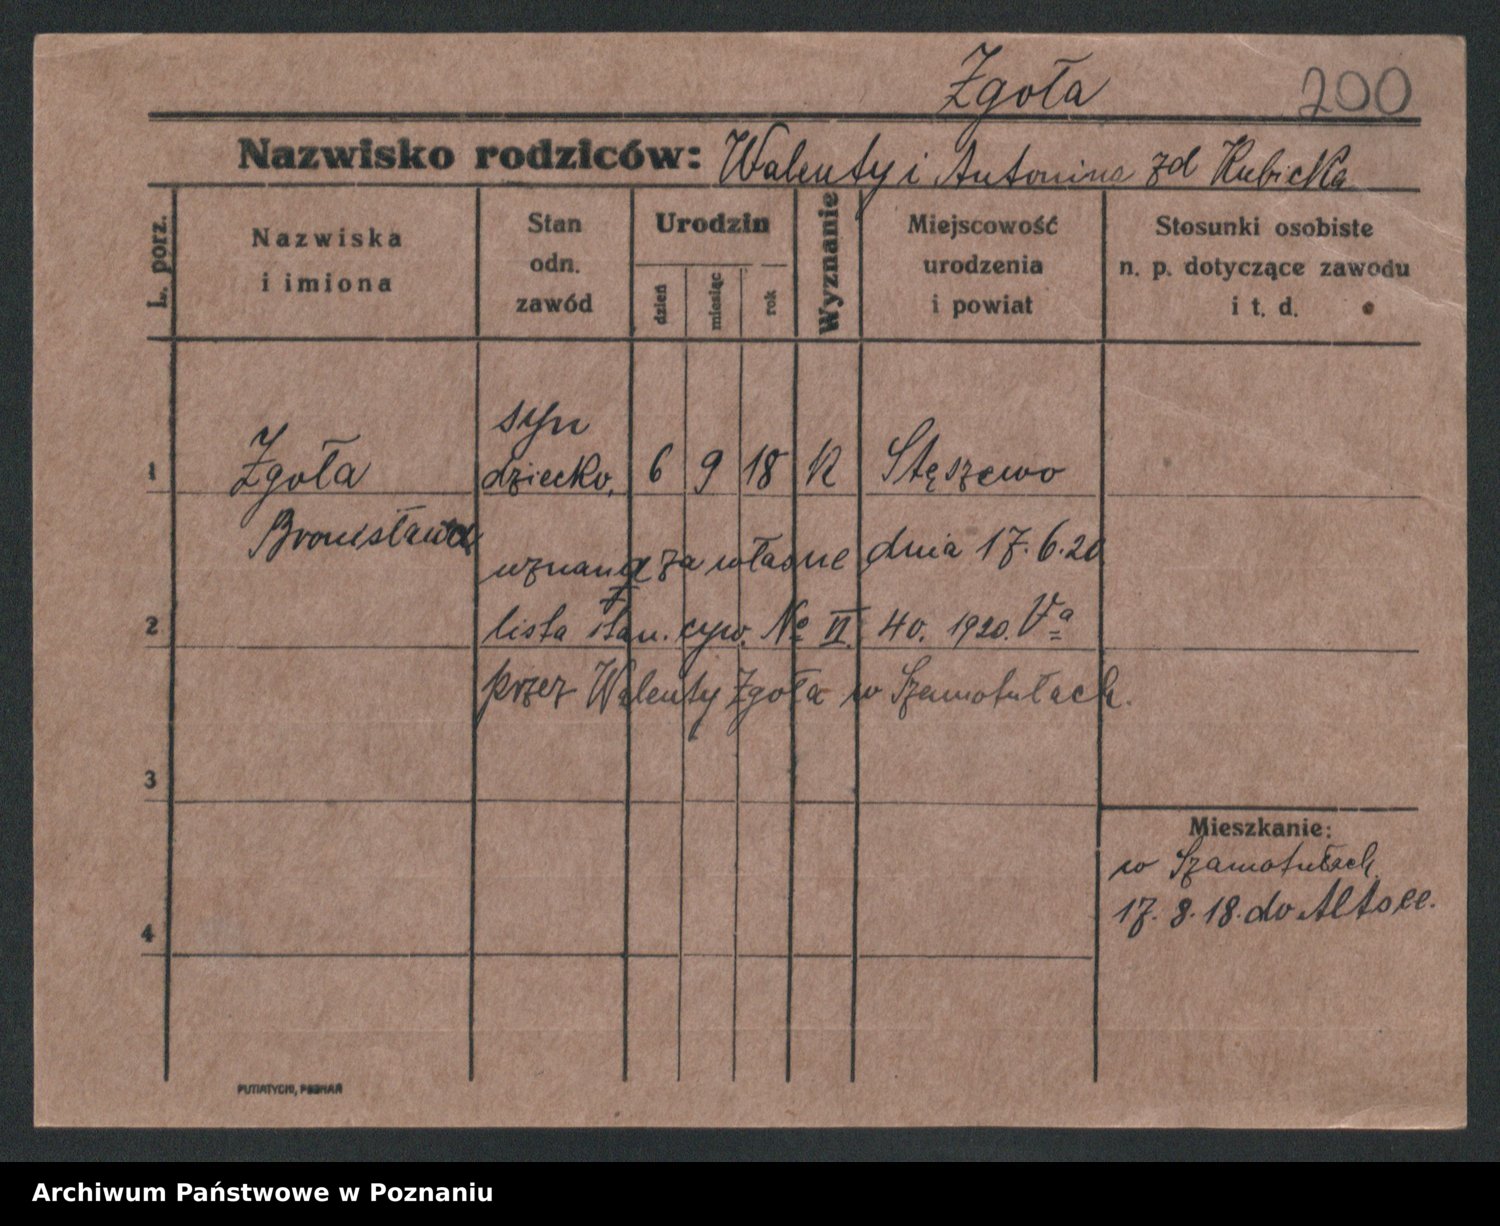 Zgoła 200
Nazwisko rodziców: Walenty i Antonina zd Kubicka
L. porz.
Nazwiska
i imiona
Stan
odn.
zawód
Urodzin
dzień
miesiąc
rok
Wyznanie
Miejscowość
urodzenia
i powiat
Stosunki osobiste
n. p. dotyczące zawodu
i t. d.
syn
1 Zgoła dziecko, 6 9 18 K Stęszewo
Bronisław
uznane za własne dnia 17.6.20
2 lista stan. cyw. No VI. 40. 1920. Va
przez Walenty Zgoła w Szamotułach.
3
Mieszkanie:
w Szamotułach
17. 8. 18. do Altsee.
4
PUTIATYCKI, POZNAŃ
Archiwum Państwowe w Poznaniu